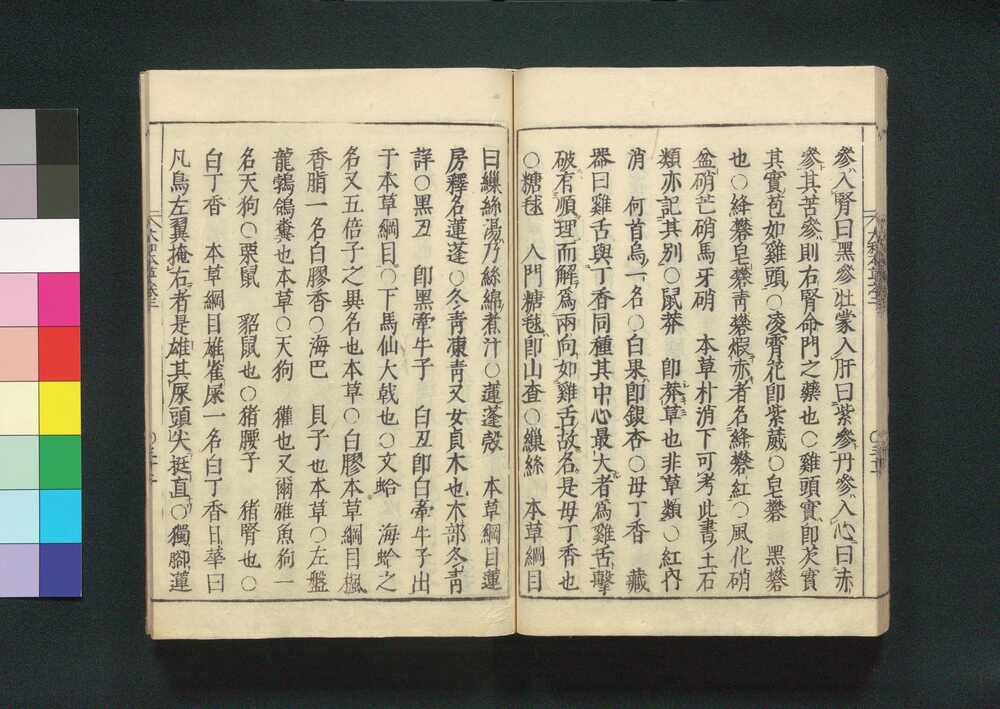 參入腎曰黑參牡蒙入肝曰紫參丹參入心曰赤
參其苦參則右腎命門之藥也○雞頭實卽芡實
其實苞如雞頭○凌霄花卽紫葳○皂礬　黑礬
也○絳礬皂礬青礬煆赤者名絳礬紅○風化硝
盆硝芒硝馬牙硝　本草朴消下可考此書土石
類亦記其別○鼠莽　卽莽草也非草類○紅內
消　何首烏一名○白果卽銀杏○母丁香　藏
器曰雞舌與丁香同種其中心最大者爲雞舌擊
破有順理而解爲兩向如雞舌故名是母丁香也
○糖毬　入門糖毬卽山査○繅絲　本草綱目
曰繅絲湯乃絲綿煮汁○蓮蓬殼　本草綱目蓮
房釋名蓮蓬○冬青凍青又女貞木也木部冬青
詳○黑丑　卽黑牽牛子　白丑卽白牽牛子出
于本草綱目○下馬仙大戟也○文蛤　海蛤之
名又五倍子之異名也本草○白膠本草綱目楓
香脂一名白膠香○海巴　貝子也本草○左盤
龍鵓鴿糞也本草○天狗　獾也又爾雅魚狗一
名天狗○栗鼠　貂鼠也○猪腰子　猪腎也○
白丁香　本草綱目雄雀屎一名白丁香日華曰
凡鳥左翼掩右者是雄其屎頭尖挺直○獨腳蓮